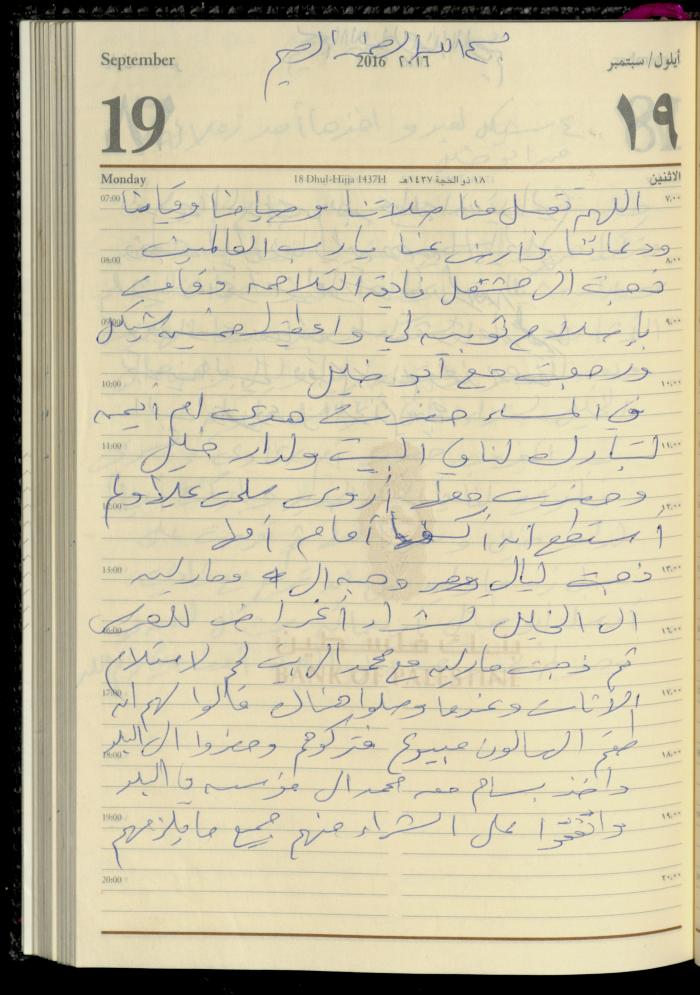 بسم الله الرحمن الرحيم
September
2016 ٢٠١٦
أيلول/ سبتمبر
19
١٩
Monday
18 Dhul-Hijja 1437H
١٨ ذو الحجة ١٤٣٧هـ
الاثنين
07:00 ٧:٠٠
اللهم تقبل منا صلاتنا وصيامنا وقيامنا
ودعائنا وارض عنا يارب العالمين
08:00 ٨:٠٠
ذهبت الى مشغل نادية التلاحمه وقامت
09:00 ٩:٠٠
بإصلاح ثوبين لي واعطيتها خمسين شيكل
ورجعت مع أبو خليل
10:00 ١٠:٠٠
في المساء حضرت هدى أم
11:00 ١١:٠٠
لتبارك لنا في البيت ولدار خليل
وحضرت معها أروى سلمت عليها ولم
12:00 ١٢:٠٠
أستطع ان أمام
13:00 ١٣:٠٠
ذهبت ليالي وهبه ال ومارلين
الى الخليل لشراء أغراض للعرس
16:00 ١٤:٠٠
ثم ذهبت مارلين مع محمد الى لاستلام
17:00 ١٥:٠٠
الأثاث وعندما وصلوا هناك قالوا لهم ان
BANK OF PALESTINE
١٧:٠٠
طقم الصالون مبيوع فتركوهم وحضروا الى البلد
18:00 ١٨:٠٠
واخذ بسام معه محمد الى مؤسسه في البلد
19:00 ١٩:٠٠
واتفقوا على الشراء منهم جميع ما يلزمهم
20:00 ٢٠:٠٠